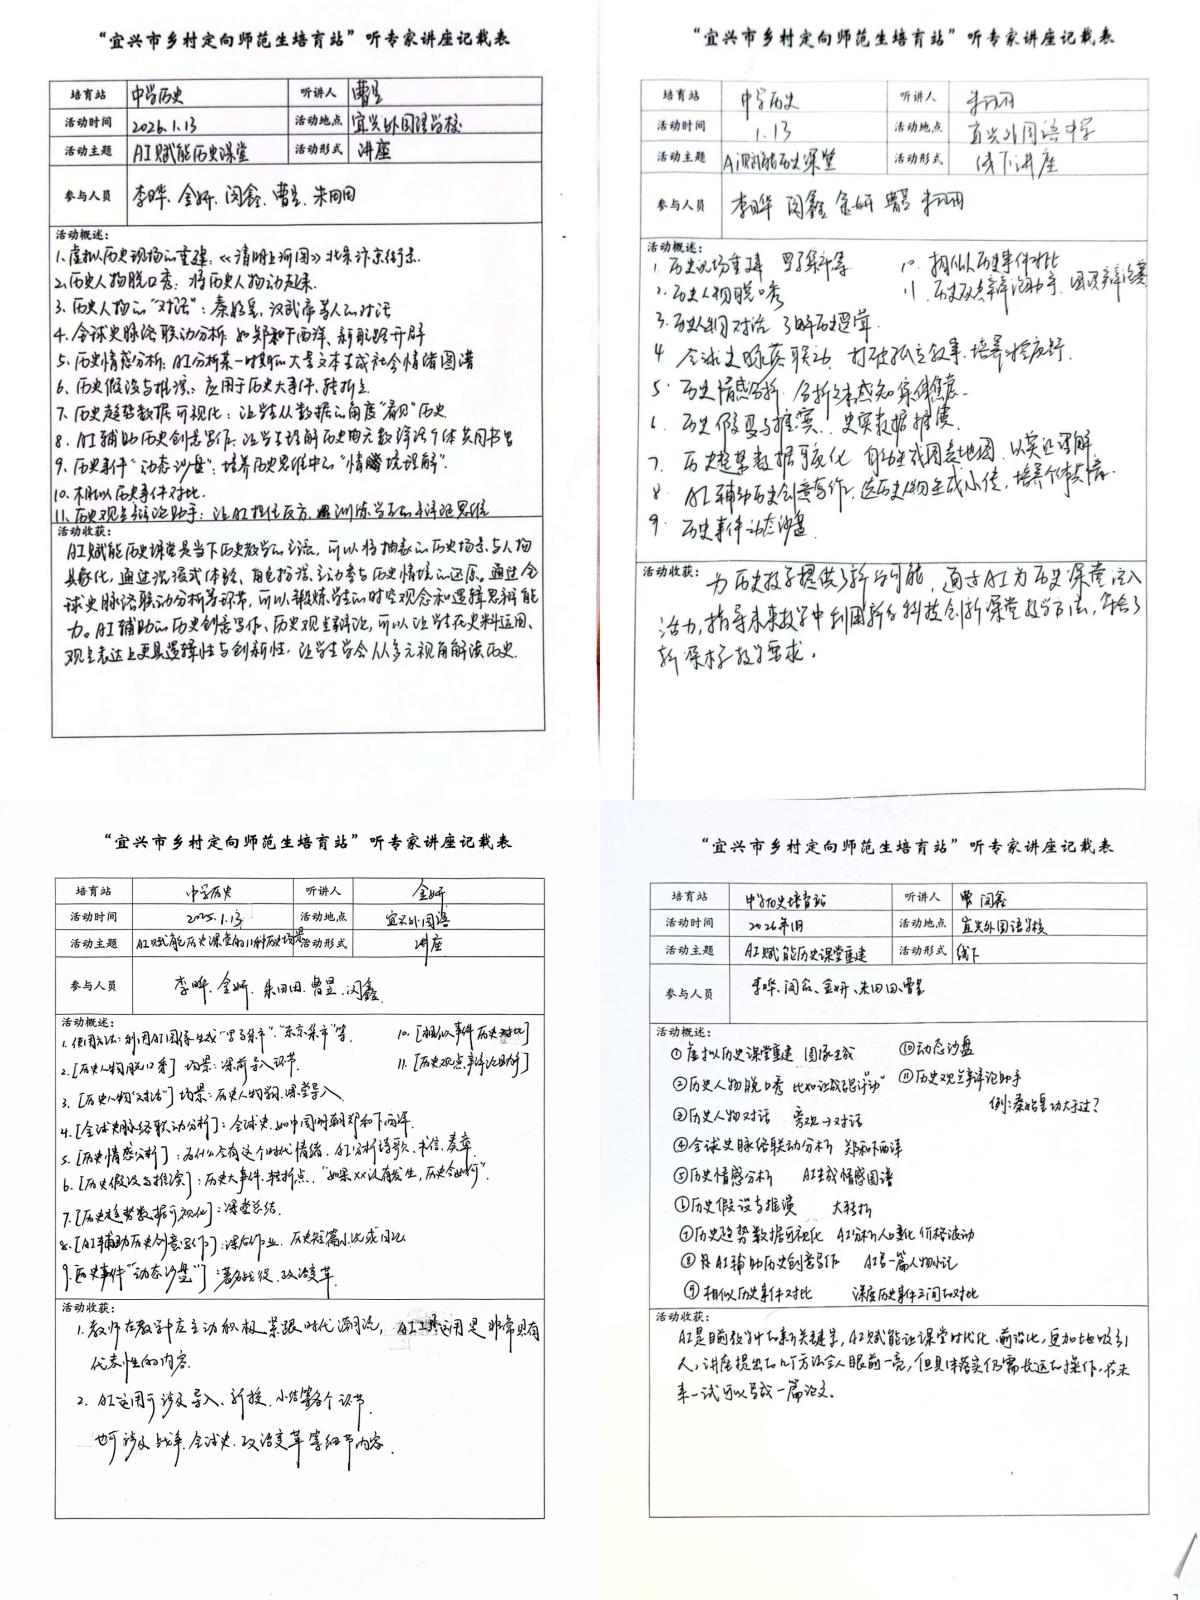 “宜兴市乡村定向师范生培育站”听专家讲座记载表
培育站 中学历史 听讲人 曹昱
活动时间 2026.1.13 活动地点 宜兴外国语学校
活动主题 AI赋能历史课堂 活动形式 讲座
参与人员 李晔、金妍、闵鑫、曹昱、朱田田
活动概述:
1.虚拟历史现场的重建:《清明上河图》北宋汴京街景
2.历史人物脱口秀:将历史人物动起来
3.历史人物的“对话”:秦始皇、汉武帝等人的对话
4.全球史脉络联动分析:如郑和下西洋、新航路开辟
5.历史情感分析:AI分析某一时期的大量文本生成社会情绪图谱
6.历史假设与推演:应用于历史大事件、转折点
7.历史趋势数据可视化:让学生从数据的角度“看见”历史
8.AI辅助历史创意写作:让学生理解历史由无数鲜活个体共同书写
9.历史事件“动态沙盘”:培养历史思维中的“情境理解”.
10.相似历史事件对比.
11.历史观点辩论助手:让AI担任反方,训练学生的辩证思维
活动收获:
AI赋能历史课堂是当下历史教学的主流,可以将抽象的历史场景与人物
具象化,通过沉浸式体验、角色扮演、主动参与历史情境的还原。通过全
球史脉络联动分析等环节,可以锻炼学生的时空观念和逻辑思辨能
力。AI辅助的历史创意写作、历史观点辩论,可以让学生在史料运用、
观点表达上更具逻辑性与创新性,让学生学会从多元视角解读历史.
“宜兴市乡村定向师范生培育站”听专家讲座记载表
培育站 中学历史 听讲人 朱田田
活动时间 1.13 活动地点 宜兴外国语中学
活动主题 Ai赋能历史课堂 活动形式 线下讲座
参与人员 李晔 闵鑫 金妍 曹昱 朱田田
活动概述:
1.历史现场重建 罗马集市等 10.相似历史事件对比
2.历史人物脱口秀 11.历史观点辩论助手
3.历史人物对话 了解历史逻辑
4 全球史脉络联动 打破孤立叙事
5.历史情感分析
6 历史假设与推演 史实数据推演
7 历史趋势数据可视化 自动生成图表地图
8 AI辅助历史创意写作
9.历史事件动态沙盘
活动收获:
为历史教学提供了新的可能,通过AI为历史课堂注入
活力,指导未来教学中利用新的科技创新课堂教学方法,符合了
新课标教学要求。
“宜兴市乡村定向师范生培育站”听专家讲座记载表
培育站 中学历史 听讲人 金妍
活动时间 2025.1.13 活动地点 宜兴外国语
活动主题 AI赋能历史课堂的11种历史场景 活动形式 讲座
参与人员 李晔、金妍、朱田田、曹昱、闵鑫
活动概述:
1.使用方法:利用AI图像生成“罗马集市”、“东京集市”等. 10.[相似事件历史对比]
2.[历史人物脱口秀] 场景:课前导入环节. 11.[历史观点辩论助手]
3.[历史人物“对话”] 场景:历史人物,课堂导入
4.[全球史脉络联动分析]:全球史,如中国明朝郑和下西洋.
5.[历史情感分析]:为什么会有这个时代情绪,AI分析诗歌、书信、奏章.
6.[历史假设与推演]:历史大事件、转折点,“如果xx没有发生,历史会如何”.
7.[历史趋势数据可视化]:课堂总结.
8.[AI辅助历史创意写作]:课后作业,历史短篇小说或日记
9.[历史事件“动态沙盘”]:著名战役、政治变革.
活动收获:
1.教师在教学中应主动积极紧跟时代潮流,AI工具运用是非常具有
代表性的内容.
2.AI运用可涉及导入、新授、小结等各个环节.
也可涉及战争、全球史、政治变革等细节内容.
“宜兴市乡村定向师范生培育站”听专家讲座记载表
培育站 中学历史培育站 听讲人 闵鑫
活动时间 2026年1月 活动地点 宜兴外国语学校
活动主题 AI赋能历史课堂重建 活动形式 线下
参与人员 李晔、闵鑫、金妍、朱田田、曹昱
活动概述:
①虚拟历史课堂重建 图像生成 ⑩动态沙盘
②历史人物脱口秀 ⑪历史观点辩论助手
例:秦始皇功大于过?
③历史人物对话 旁观→对话
④全球史脉络联动分析 郑和下西洋
⑤历史情感分析 AI生成情感图谱
⑥历史假设与推演 大转折
⑦历史趋势数据可视化 AI分析人口变化 价格波动
⑧AI辅助历史创意写作 AI写一篇人物小记
⑨相似历史事件对比 深度历史事件之间的对比
活动收获:
AI是目前教学中的新关键点,AI赋能让课堂时代化、前沿化,更加地吸引
人,讲座提出的几个方法令人眼前一亮,但具体落实仍需长远的操作,在未
来一试可以写成一篇论文。